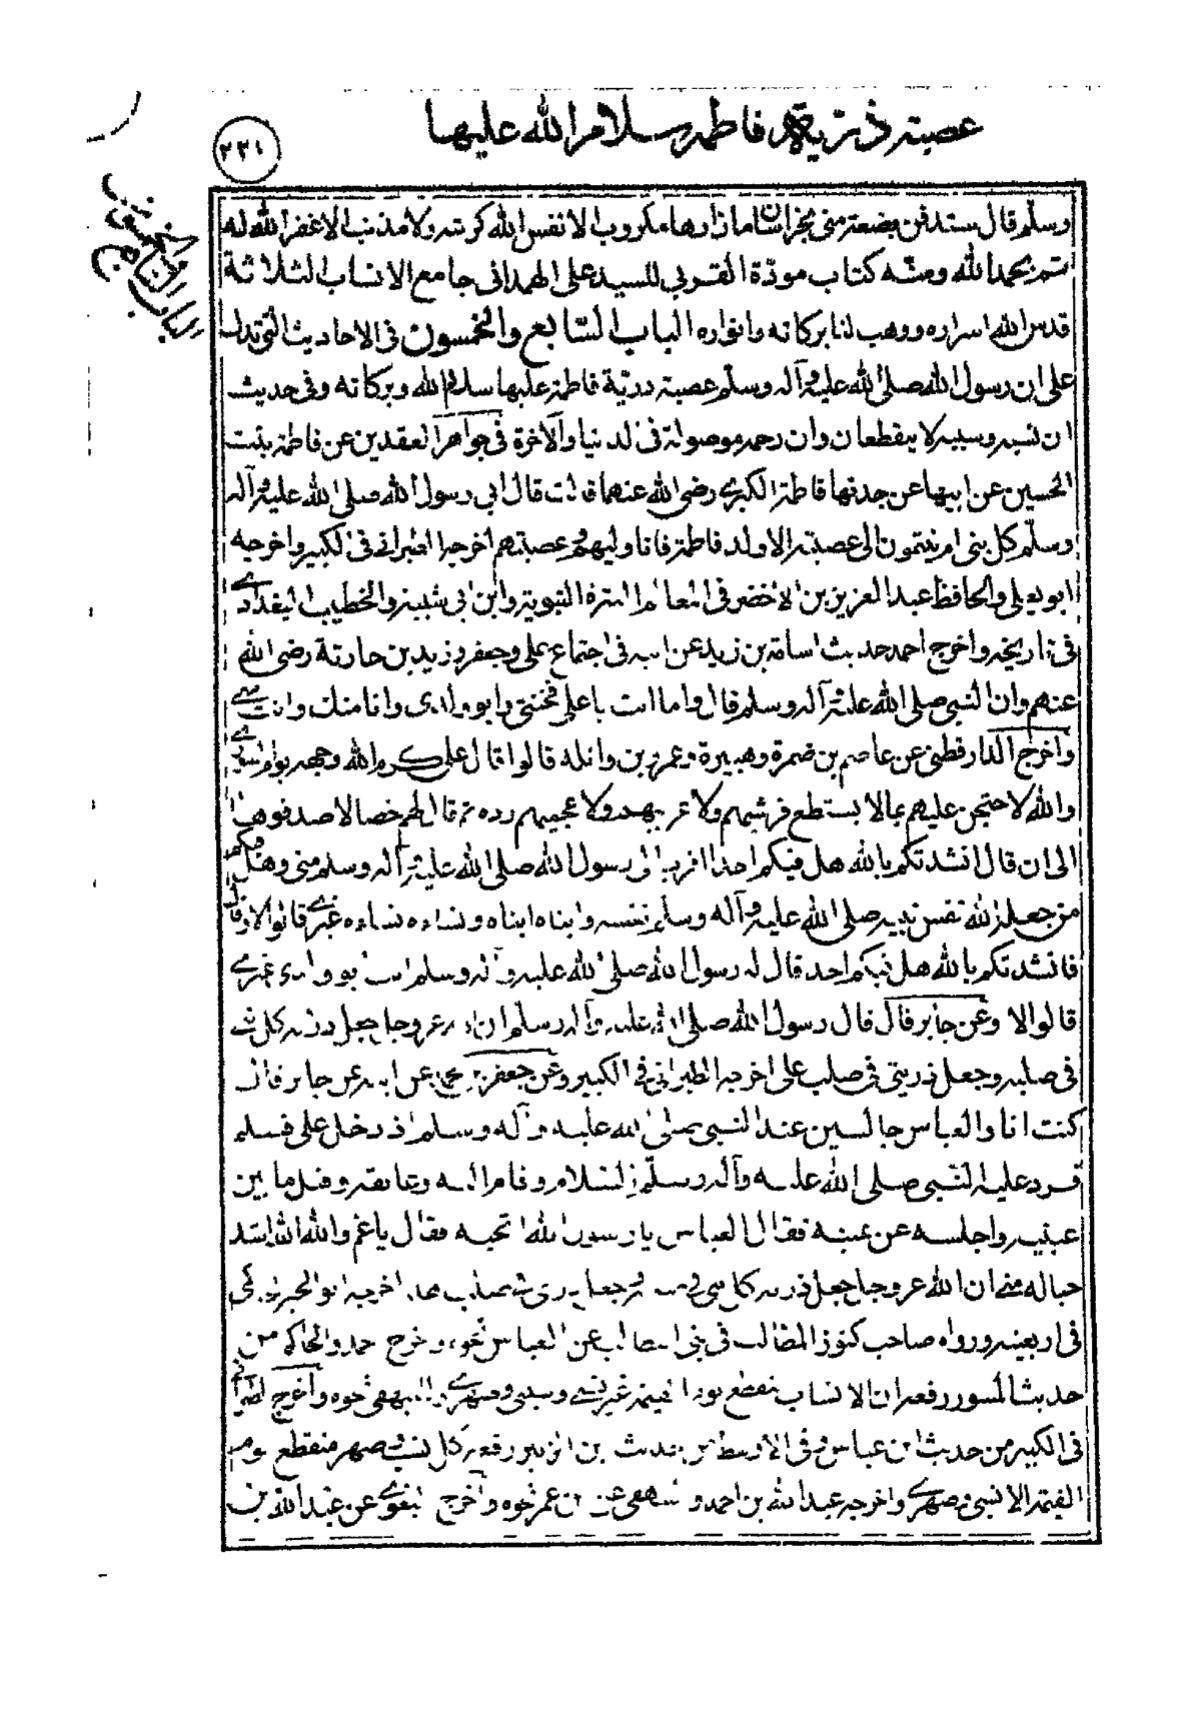 عصبته ذريته فاطمه سلام الله عليها
٢٢١
الباب السابع والخمسون
وسلم قال ستدفن بضعة مني بخراسان ما زارها مكروب الا نفس الله كربته ولا مذنب الا غفر الله له
تم بحمد الله ومنّه كتاب مودّة القربي للسيد علي الهمداني جامع الانساب الثلاثة
قدس الله اسراره ووهب لنا بركاته وانواره الباب السّابع والخمسون في الاحاديث التي تدل
علي ان رسول الله صلي الله عليه وآله وسلم عصبته ذريّة فاطمة عليها سلام الله وبركاته وفي حديث
ان نسبه وسببه لا ينقطعان وان رحمه موصولة في الدنيا والآخرة في جواهر العقدين عن فاطمة بنت
الحسين عن ابيها عن جدتها فاطمة الكبرى رضي الله عنهما قالت قال ابي رسول الله صلي الله عليه وآله
وسلّم كل بني ام ينتمون الى عصبته الا ولد فاطمة فانا وليهم وعصبتهم اخرجه الطبراني في الكبير واخرجه
ابو يعلى والحافظ عبد العزيز بن الاخضر في العترة النبوية وابن ابي شيبة والخطيب البغدادي
في تاريخه واخرج احمد حديث اسامة بن زيد عن ابيه في اجتماع علي وجعفر وزيد بن حارثة رضي الله
عنهم وان النبي صلي الله عليه وآله وسلم قال واما انت يا علي فختني وابو ولدي وانا منك وانت مني
واخرج الدارقطني عن عاصم بن ضمرة وهبيرة وعمرو بن واثله قالوا قال علي كرم الله وجهه يوم الشورى
والله لاحتجن عليهم بما لا يستطع قرشيهم ولا عربيهم ولا عجميهم رده ثم قال لهم خصالا صدقوها
الى ان قال انشدتكم بالله هل فيكم احد اقرب الى رسول الله صلي الله عليه وآله وسلم مني وهل فيكم
من جعله الله نفس نبيه صلي الله عليه وآله وسلم نفسه وابناه ابناه ونساءه نساءه غيري قالوا لا وقال
فانشدتكم بالله هل فيكم احد قال له رسول الله صلي الله عليه وآله وسلم انت ابو ولدي غيري
قالوا لا وعن جابر قال قال رسول الله صلي الله عليه وآله وسلم ان الله عز وجل جعل ذرية كل نبي
في صلبه وجعل ذريتي في صلب علي اخرجه الطبراني في الكبير وعن جعفر بن محمد عن ابيه عن جابر قال
كنت انا والعباس جالسين عند النبي صلى الله عليه وآله وسلم اذ دخل علي فسلم
فرد عليه النبي صلي الله عليه وآله وسلم السلام وقام اليه وعانقه وقبل ما بين
عينيه واجلسه عن يمينه فقال العباس يا رسول الله اتحبه فقال يا عم والله الله اشد
حبا له مني ان الله عز وجل جعل ذرية كل نبي في صلبه وجعل ذريتي في صلب هذا اخرجه ابو الخير
في اربعينه ورواه صاحب كنوز المطالب في بني ابيطالب عن العباس نحوه واخرج احمد والحاكم من
حديث المسور رفعه ان الانساب تنقطع يوم القيمة غير نسبي وسببي وصهري والبيهقي نحوه واخرج الطبراني
في الكبير من حديث ابن عباس وفي الاوسط من حديث ابن الزبير رفعه كل نسب وصهر منقطع يوم
القيمة الا نسبي وصهري واخرجه عبد الله بن احمد والبيهقي عن ابن عمر نحوه واخرج البغوي عن عبد الله بن